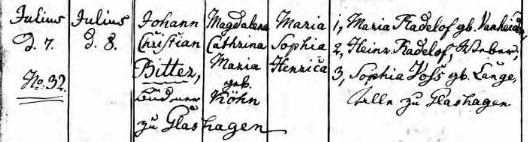 Julius
d. 7.
No. 32.
Julius
d. 8.
Johann
Christian
Bitter,
zu Glashagen
Magdalena
Cathrina
Maria
geb.
Köhn
Maria
Sophia
Henrica
1, Maria Radelof gb.
2, Heinr. Radelof,
3, Sophia Voss gb. Lange,
alle zu Glashagen